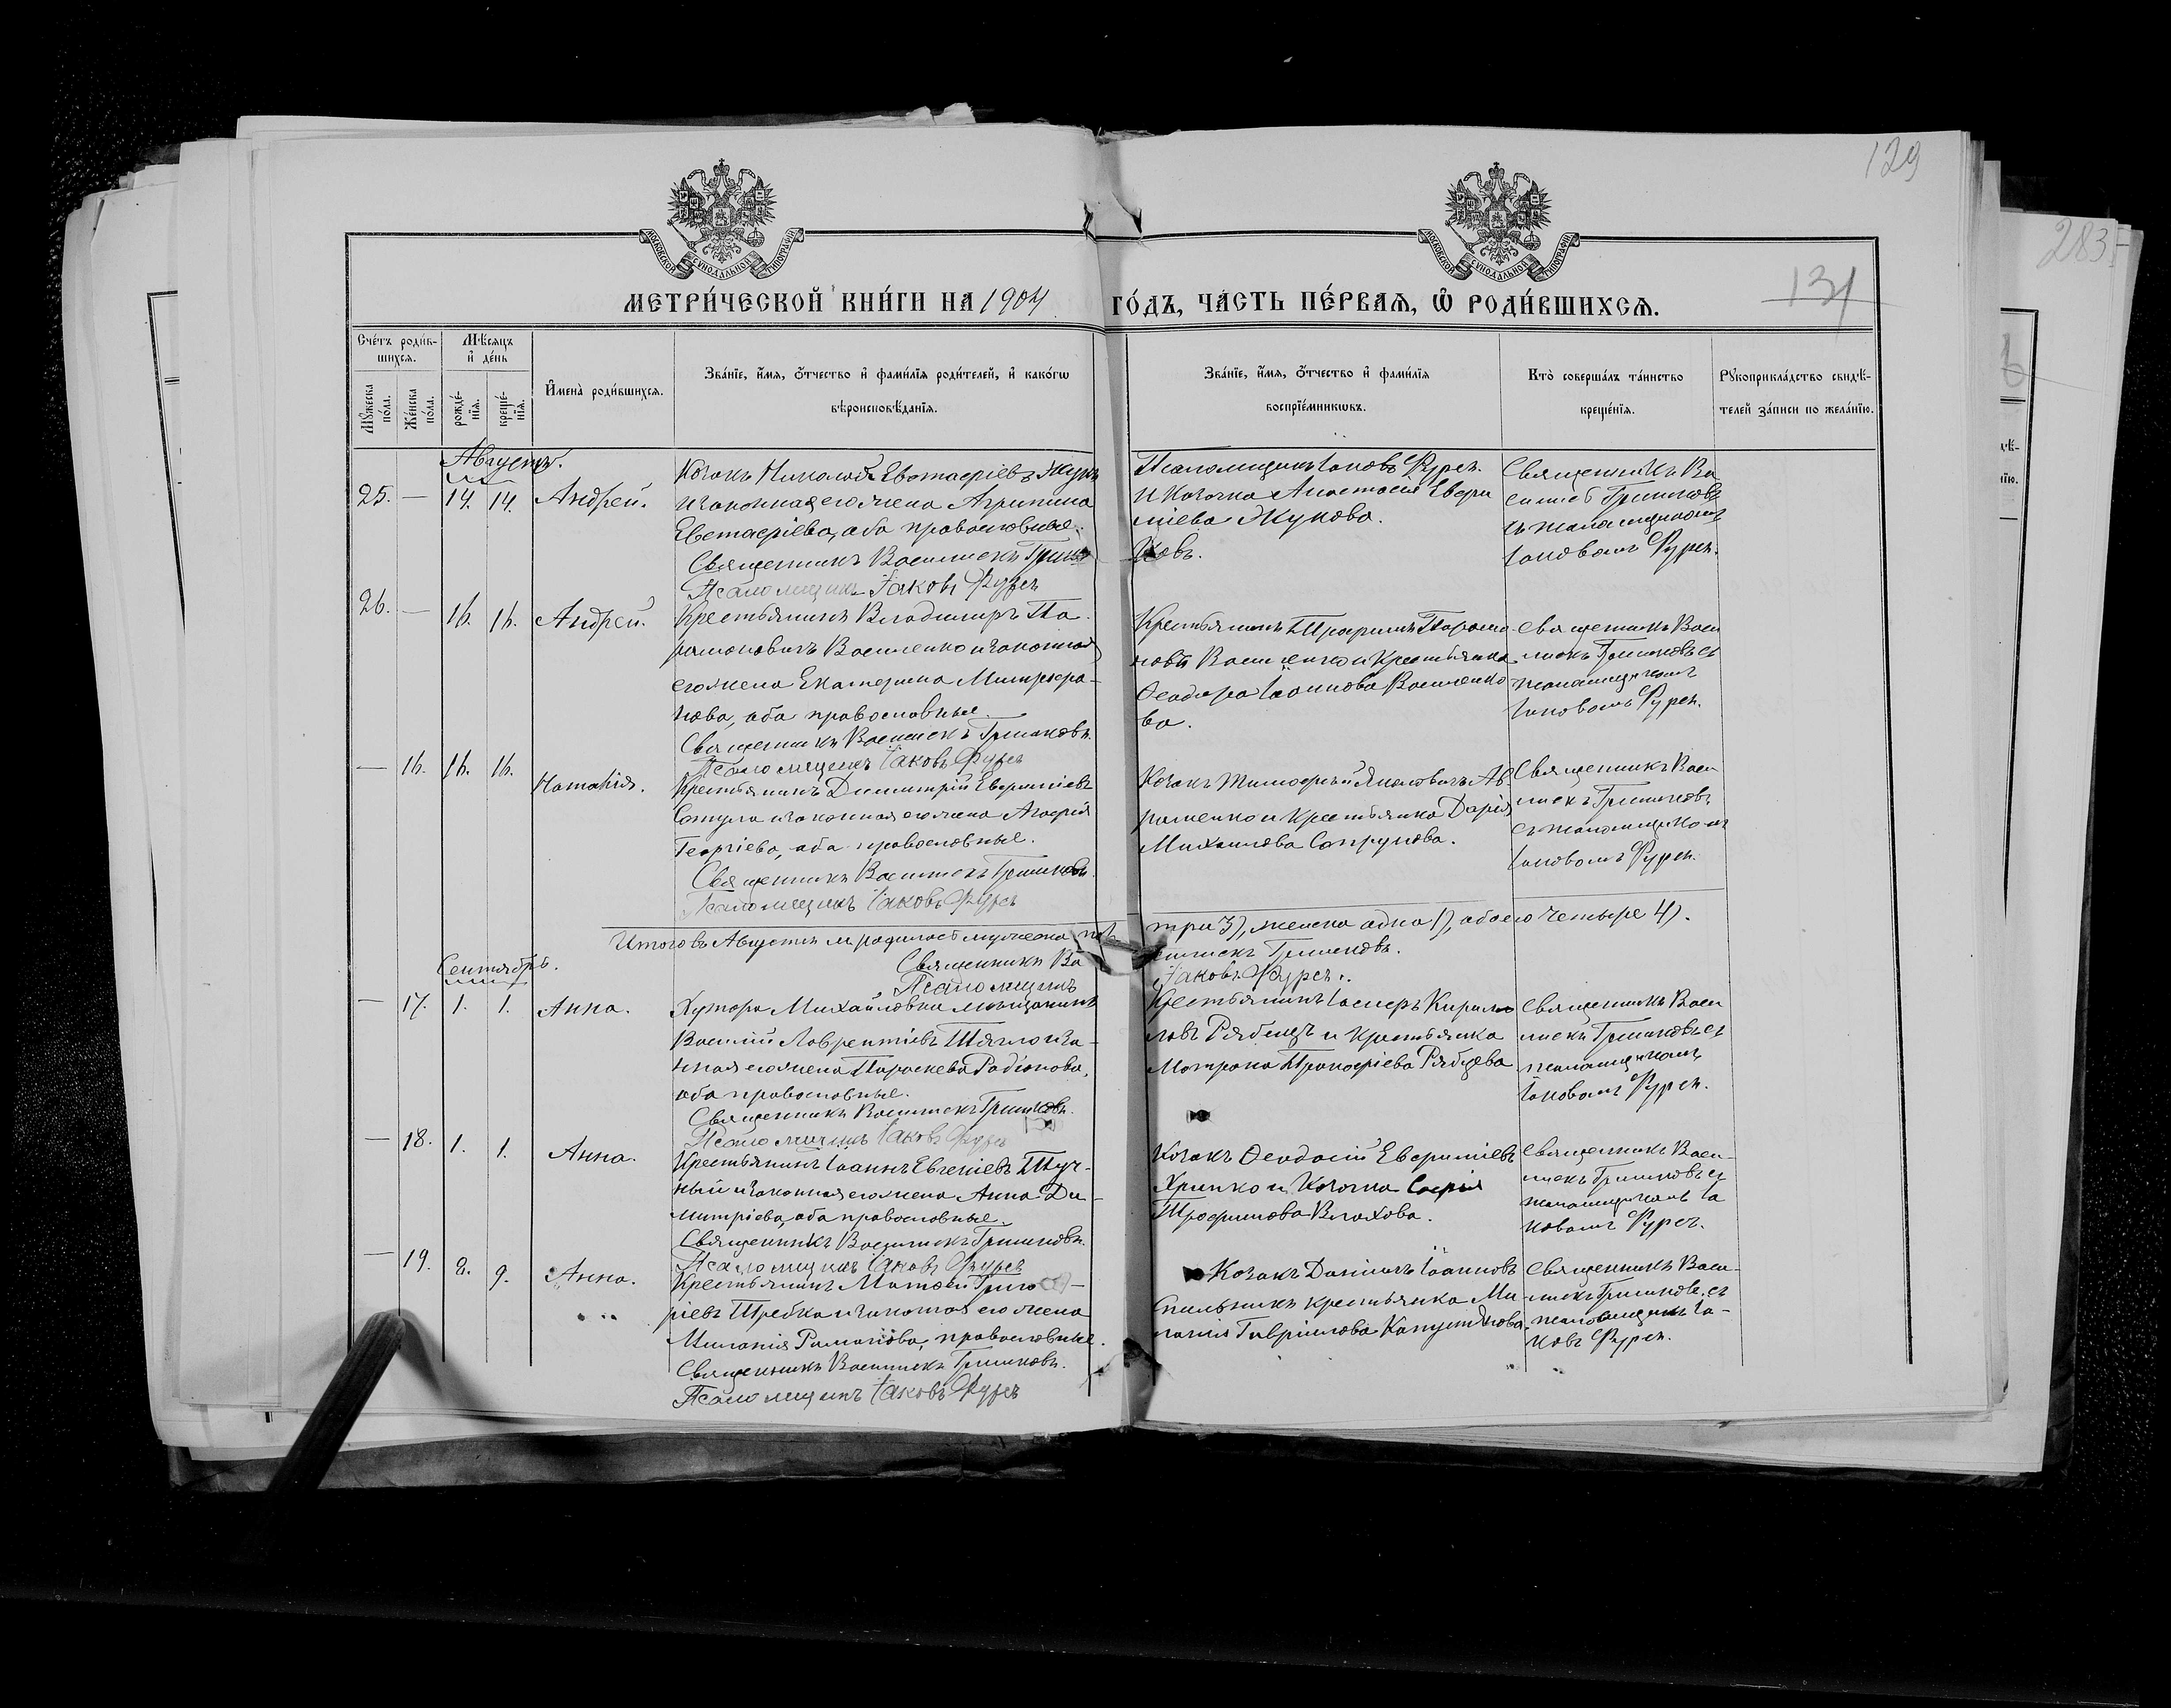 129
131
283
МОСКОВСКОЙ СѴНОДАЛЬНОЙ ТИПОГРАФІИ
МОСКОВСКОЙ СѴНОДАЛЬНОЙ ТИПОГРАФІИ
МЕТРИ́ЧЕСКОЙ КНИ́ГИ НА 1904 ГО́ДЪ, ЧА́СТЬ ПЕ́РВАЯ, Ѡ РОДИ́ВШИХСЯ.
Сче́тъ роди́в-
шихся.
Мꙋжеска по́ла.
Же́нска по́ла.
Мѣ́сяцъ
и҆ де́нь
рожде́-
нїя.
креще́-
нїя.
И҆мена̀ роди́вшихся.
Зва́нїе, и҆́мя, ѻ҆́тчество и҆ фами́лїя роди́телей, и҆ како́гѡ
вѣроисповѣ́данїя.
Зва́нїе, и҆́мя, ѻ҆́тчество и҆ фами́лїя
воспрїе́мникѡвъ.
Кто̀ соверша́лъ та́инство
креще́нїя.
Рꙋкоприкла́дство свидѣ́-
телей за́писи по жела́нїю.
Августъ.
25. — 14. 14. Андрей.
Козакъ Николай Евстафіевъ Жукъ
и законная его жена Агрипина
Евстафіева, оба православные.
Священникъ Василискъ Гришковъ.
Псаломщикъ Іаковъ Фурсъ
Псаломщикъ Іаковъ Фурсъ
и козачка Анастасія Евфи
міева Жукова.
Священникъ Ва
силискъ Гришковъ
съ псаломщикомъ
Іаковомъ Фурсъ.
26. — 16. 16. Андрей.
Крестьянинъ Владимиръ Па-
рамоновичъ Василенко и законная
его жена Екатерина Митрофа-
нова, оба православные.
Священникъ Василискъ Гришковъ.
Псаломщикъ Іаковъ Фурсъ
Крестьянинъ Трофимъ Парамо-
новъ Василенко и крестьянка
Ѳеодора Іоаннова Василенко
ва.
Священникъ Васи
лискъ Гришковъ съ
псаломщикомъ
Іаковомъ Фурсъ.
— 16. 16. 16. Наталія.
Крестьянинъ Димитрій Евфиміевъ
и законная его жена Агафія
Георгіева, оба православные.
Священникъ Василискъ Гришковъ.
Псаломщикъ Іаковъ Фурсъ
Козакъ Тимофей Яковлевъ Ав-
раменко и крестьянка Дарія
Михаилова Сапрунова.
Священникъ Васи
лискъ Гришковъ
съ псаломщикомъ
Іаковомъ Фурсъ.
Итого въ Августѣ м. родилось мужеска пола три 3), женска одна 1), обоего четыре 4).
Священникъ Василискъ Гришковъ.
Псаломщикъ Іаковъ Фурсъ.
Сентябрь.
— 17. 1. 1. Анна.
Хутора Михайловки мѣщанинъ
Василій Лаврентіевъ Тягло и за-
нная его жена Параскева Радіонова,
оба православные.
Священникъ Василискъ Гришковъ.
Псаломщикъ Іаковъ Фурсъ
Крестьянинъ Іосифъ Кирил-
ловъ Рябецъ и крестьянка
Матрона Прокофіева Рябцева
Священникъ Васи
лискъ Гришковъ съ
псаломщикомъ
Іаковомъ Фурсъ.
— 18. 1. 1. Анна.
Крестьянинъ Іоаннъ Евгеніевъ Туч-
ный и законная его жена Анна Ди-
митріева, оба православные.
Священникъ Василискъ Гришковъ.
Псаломщикъ Іаковъ Фурсъ
Козакъ Ѳеодосій Евфиміевъ
Хрипко и козачка Софія
Трофимова Влахова.
Священникъ Васи-
лискъ Гришковъ съ
псаломщикомъ Іа
ковомъ Фурсъ.
— 19. 8. 9. Анна.
Крестьянинъ Матѳей Григо-
ріевъ Требка и законная его жена
Миланія Романова, православные.
Священникъ Василискъ Гришковъ.
Псаломщикъ Іаковъ Фурсъ
Козакъ Даніилъ Іоанновъ
крестьянка Ми-
ланія Гавріилова Капустянова.
Священникъ Васи-
лискъ Гришковъ съ
псаломщикъ Іа-
ковъ Фурсъ.